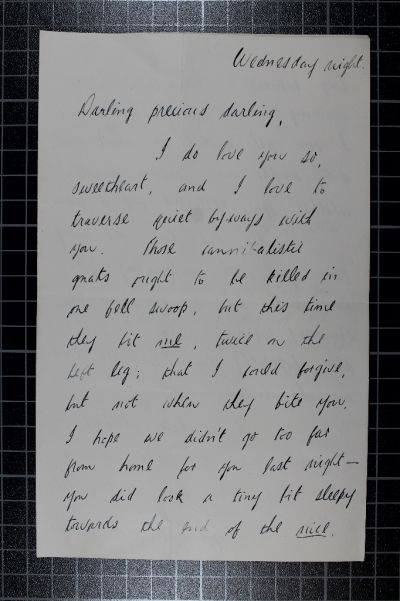 Wednesday night.
Darling precious darling,
I do love you so,
sweetheart, and I love to
traverse quiet byways with
you. Those cannibalistic
gnats ought to be killed in
one fell swoop, but this time
they bit me, twice on the
left leg; that I could forgive,
but not when they bite you.
I hope we didn't go too far
from home for you last night—
you did look a tiny bit sleepy
towards the end of the nice.